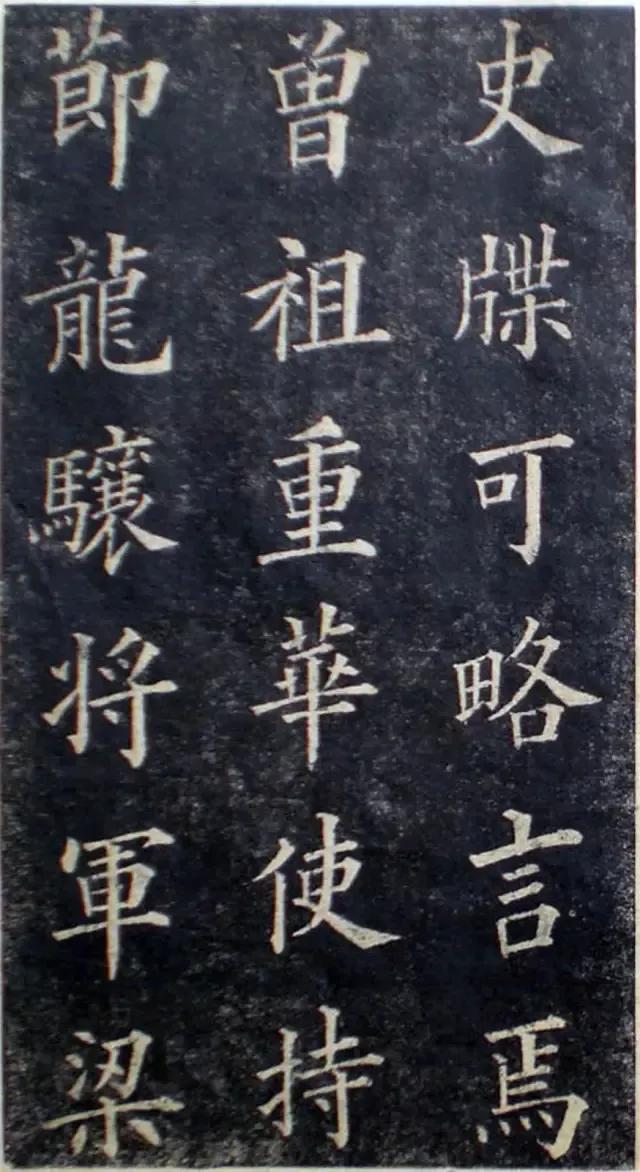 史牒可略言焉
曽祖重華使持
節龍驤将軍梁